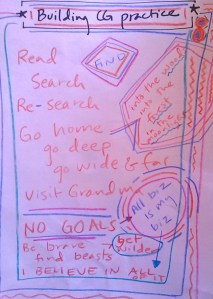 Building CG practice
8
Read
GND
Search
Re-search
Into the world
into the
Go home
go deep
go wide & far
Visit Grandma
All biz
is my
biz
NO GOALS
Be brave
get
wilder
find beasts
I BELIEVE IN ALL
OF IT